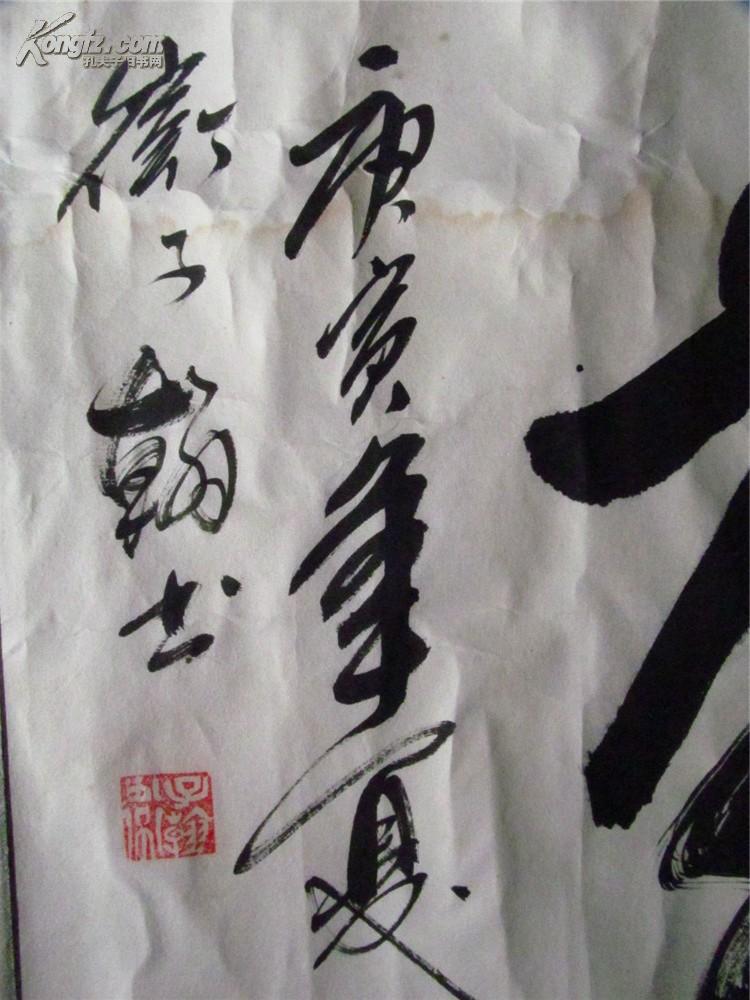 Kongfz.com
孔夫子旧书网
庚寅年夏
子翰书
子翰